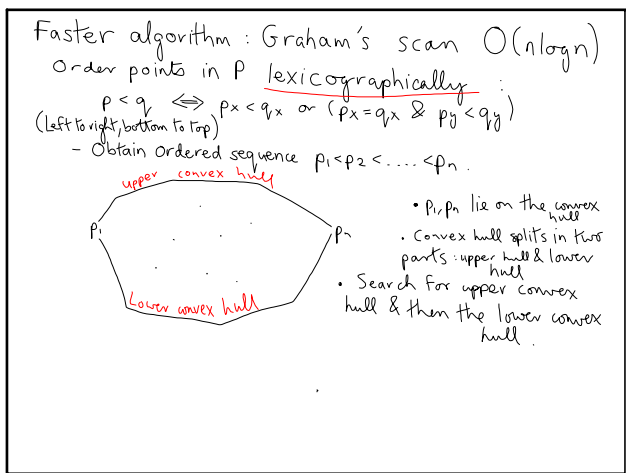 Faster algorithm : Graham's scan O(nlogn)
Order points in P lexicographically :
p < q ⟺ px < qx or (px = qx & py < qy)
(Left to right, bottom to top)
- Obtain Ordered sequence p1 < p2 < ..... < pn .
upper convex hull
p1
pn
Lower convex hull
• p1, pn lie on the convex
hull
. Convex hull splits in two
parts : upper hull & lower
hull
• Search for upper convex
hull & then the lower convex
hull .